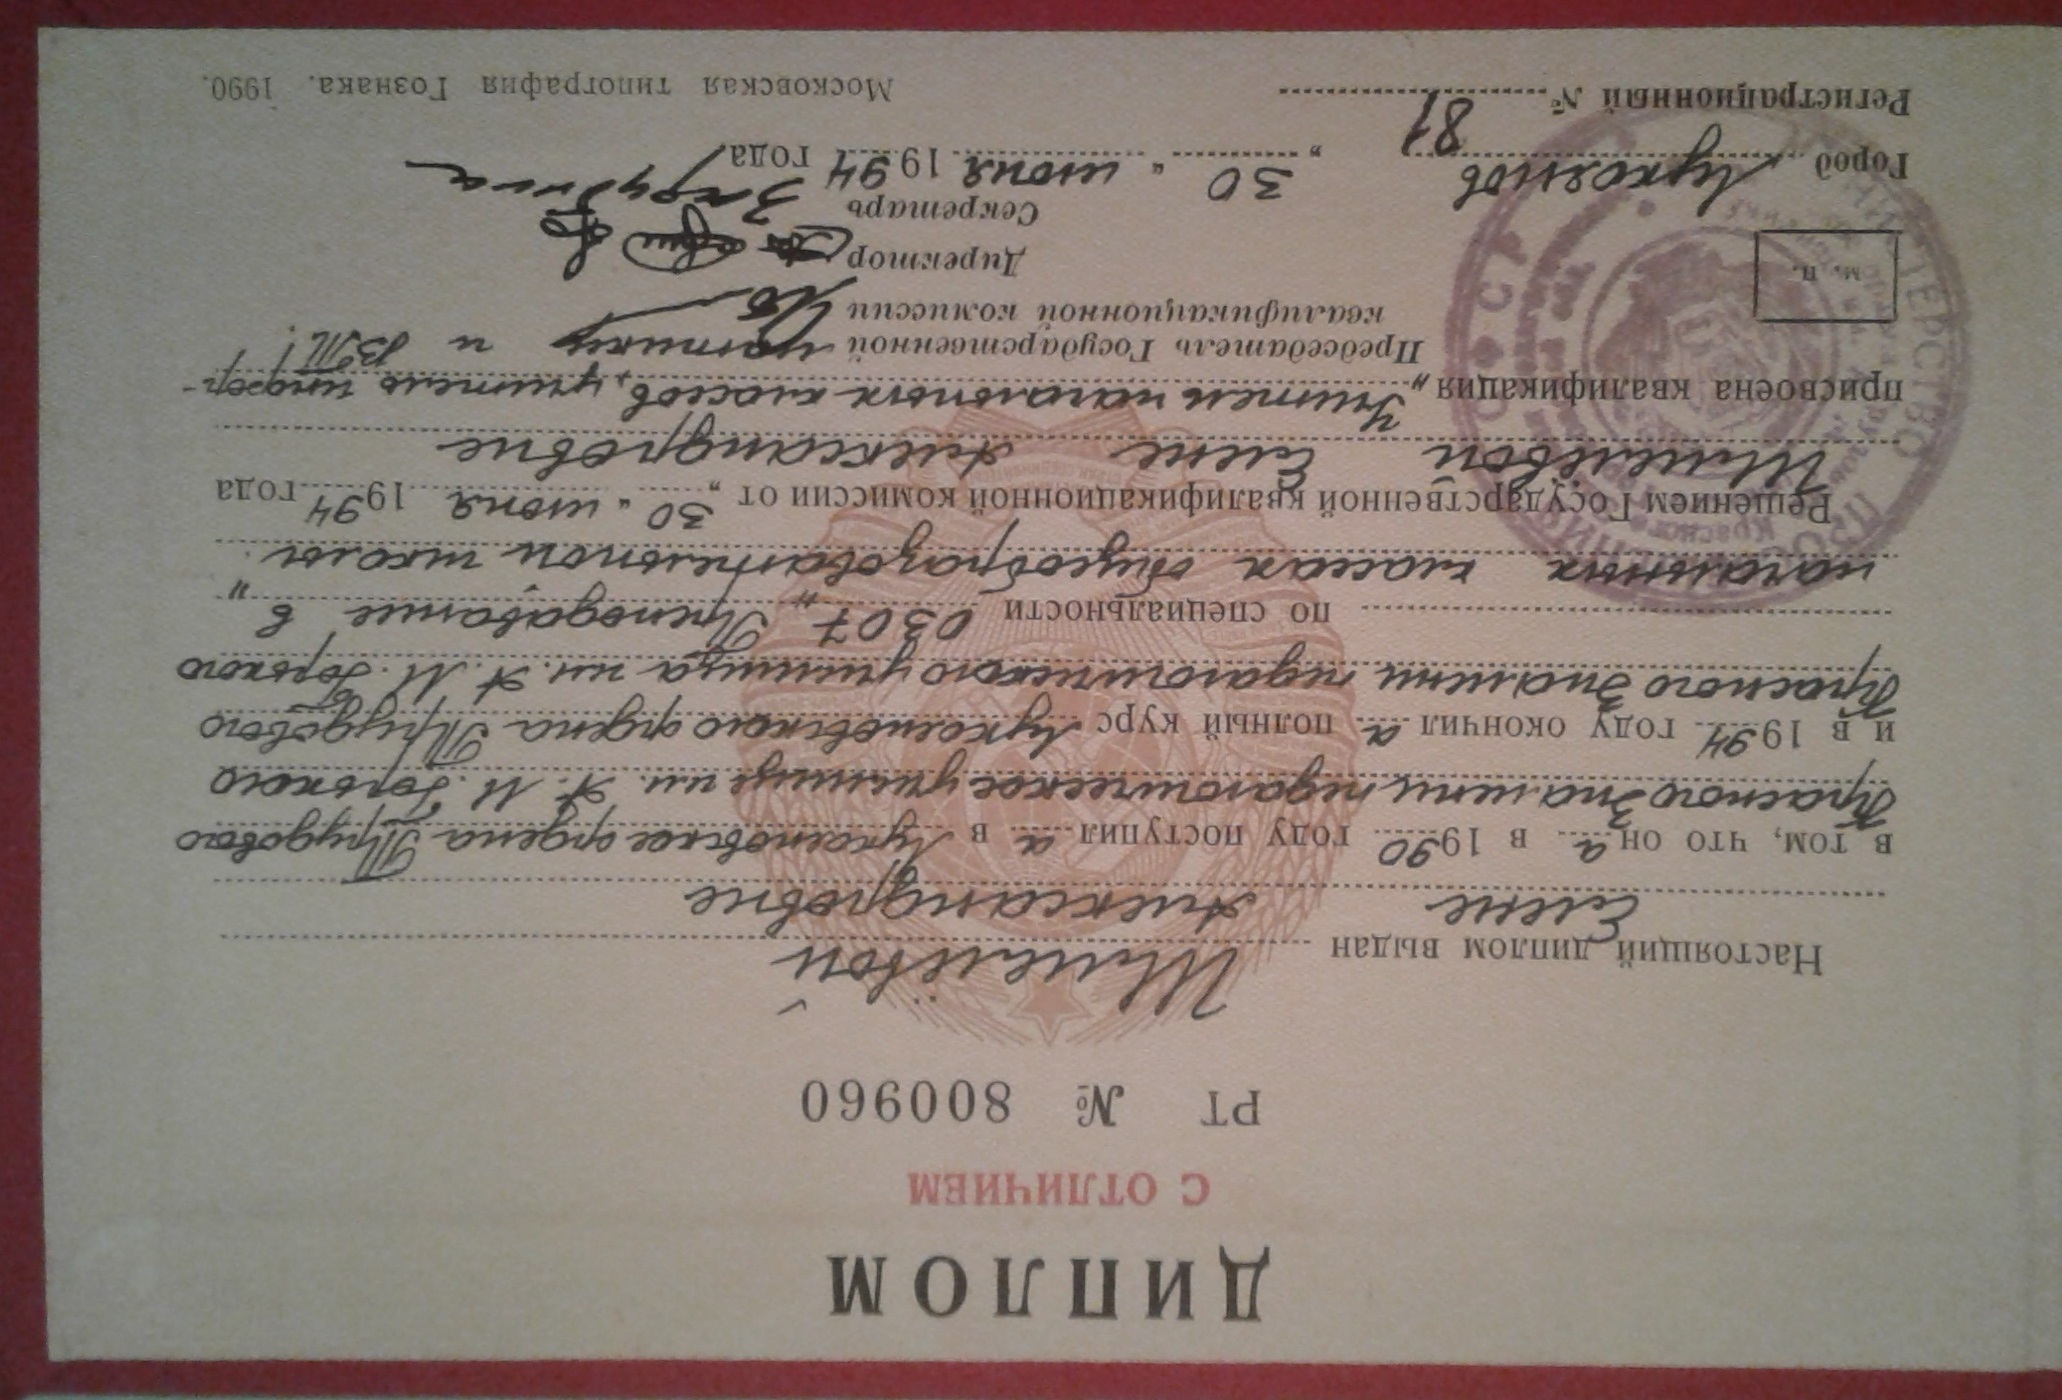 ДИПЛОМ
С ОТЛИЧИЕМ
РТ № 800960
Настоящий диплом выдан Шмелёвой
Елене Александровне
в том, что он а в 1990 году поступил а в Лукояновское ордена Трудового
Красного Знамени педагогическое училище им. А. М. Горького
и в 1994 году окончил а полный курс Лукояновского ордена Трудового
Красного Знамени педагогического училища им. А. М. Горького
по специальности 0307 „Преподавание в
начальных классах общеобразовательной школы"
Решением Государственной квалификационной комиссии от „30" июня 1994 года
Шмелёвой Елене Александровне
присвоена квалификация „Учитель начальных классов, учитель инфор-
матики и ВТ"
Председатель Государственной
квалификационной комиссии
Директор
Секретарь
м. п.
Город Лукоянов „30" июня 1994 года
Регистрационный № 81
Московская типография Гознака. 1990.